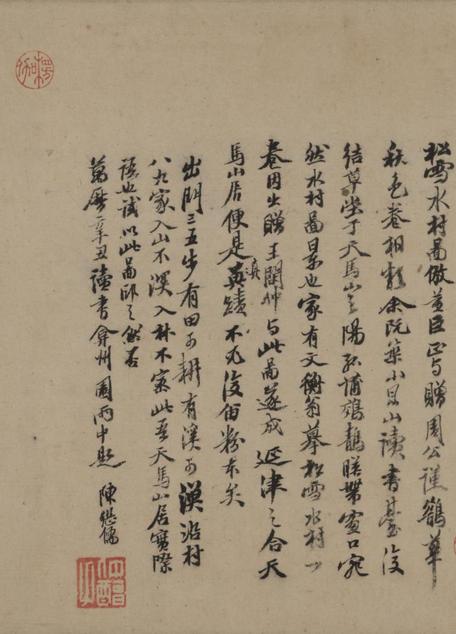 松雪水村圖倣董巨正与贈周公謹鵲華
秋色卷相類余既築小崑山讀書臺復
結草堂于天馬山之陽菰蒲鵁鶄映帶窗口宛
然水村圖景也家有文衡翁摹松雪水村一
卷因出贈王閑仲与此圖遂成延津之合天
馬山居便是真蹟不復留粉本矣
出門三五步有田可耕有溪可漁沿村
八九家入山不深入林不密此吾天馬山居實際
語也試以此圖印之然否
萬曆辛丑讀書弇州園雨中題 陳繼儒